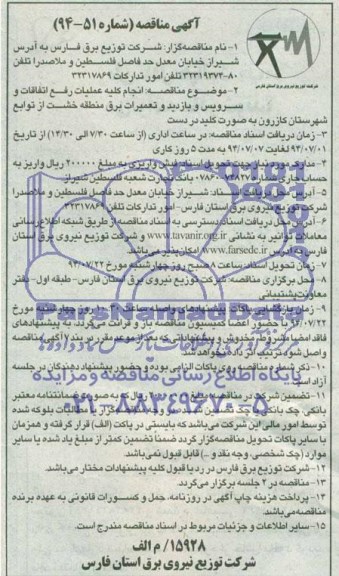 آگهی مناقصه (شماره ۵۱-۹۴)
شرکت توزیع نیروی برق استان فارس
۱- نام مناقصه‌گزار: شرکت توزیع برق فارس به آدرس
شیراز خیابان معدل حد فاصل فلسطین و ملاصدرا تلفن
۸۰-۳۲۳۱۹۳۷۳ تلفن امور تدارکات ۳۲۳۱۷۸۶۹
۲- موضوع مناقصه: انجام کلیه عملیات رفع اتفاقات و
سرویس و بازدید و تعمیرات برق منطقه خشت از توابع
شهرستان کازرون به صورت کلید در دست
۳- زمان دریافت اسناد مناقصه: در ساعات اداری (از ساعت ۷/۳۰ الی ۱۴/۳۰) از تاریخ
۹۴/۰۷/۰۱ لغایت ۹۴/۰۷/۰۷ به مدت ۵ روز کاری
۴- مدارک مورد نیاز جهت تحویل اسناد: فیش واریزی به مبلغ ۲۰۰۰۰۰ ریال واریز به
حساب جاری شماره بانک تجارت شعبه فلسطین شیراز
۵- آدرس محل دریافت اسناد: شیراز خیابان معدل حد فاصل فلسطین و ملاصدرا
شرکت توزیع نیروی برق استان فارس - امور تدارکات تلفن
۶- آدرس محل دسترسی به اسناد مناقصه از طریق شبکه اطلاع رسانی
معاملات توانیر به نشانی www.tavanir.org.ir و شرکت توزیع نیروی برق استان
فارس به آدرس www.farsedc.ir امکان‌پذیر می‌باشد.
۷- زمان تحویل اسناد: ساعت ۸ صبح روز چهارشنبه مورخ ۹۴/۰۷/۲۲
۸- محل برگزاری مناقصه: شرکت توزیع نیروی برق استان فارس- طبقه اول- دفتر
معاونت پشتیبانی
۹- زمان بازگشایی پاکات پیشنهادهای واصله ساعت ۱۰ روز چهارشنبه مورخ
۹۴/۰۷/۲۲ با حضور اعضا کمیسیون مناقصه باز و قرائت می‌گردد. به پیشنهادهای
فاقد امضا مشروط، مخدوش و پیشنهاداتی که بعد از موعد مقرر در بند ۷ آگهی مناقصه
واصل شود ترتیب اثر داده نخواهد شد.
۱۰- ذکر شماره مناقصه روی پاکات الزامی بوده و حضور پیشنهاد دهندگان در جلسه
آزاد است
پایگاه اطلاع رسانی مناقصه و مزایده
۰۲۱-۸۸۳۴۹۶۷۰-۵
۱۱- تضمین شرکت در مناقصه مبلغ ریال که به صورت ضمانتنامه معتبر
بانکی، چک بانکی، چک تضمین شده یا مطالبات بلوکه شده
توسط امور مالی این شرکت می‌باشد که بایستی در پاکت (الف) قرار گرفته و همزمان
با سایر پاکات تحویل مناقصه‌گزار گردد ضمناً تضمین کمتر از مبلغ یاد شده یا سایر
موارد (چک شخصی، وجه نقد و ...) قابل قبول نمی‌باشد.
۱۲- شرکت توزیع برق فارس در رد یا قبول کلیه پیشنهادات مختار می‌باشد.
۱۳- مناقصه در ۲ جلسه برگزار می‌گردد.
۱۴- پرداخت هزینه چاپ آگهی در روزنامه، حمل و کسورات قانونی به عهده برنده
مناقصه می‌باشد.
۱۵- سایر اطلاعات و جزئیات مربوط در اسناد مناقصه مندرج است.
۱۵۹۲۸/ م الف
شرکت توزیع نیروی برق استان فارس